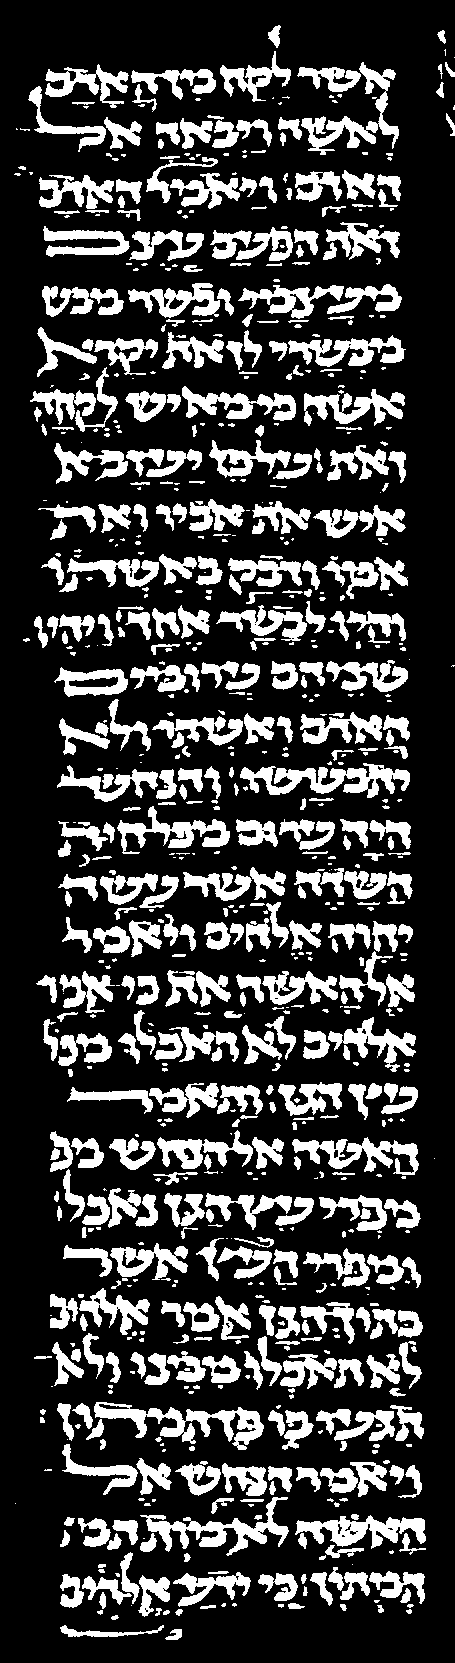 אשר לקח מן האדם
לאשה ויבאה אל
האדם׃ ויאמר האדם
זאת הפעם עצם
מעצמי ובשר מבש
מבשרי לזאת יקרא
אשה כי מאיש לקחה
זאת׃ על כן יעזב א
איש את אביו ואת
אמו ודבק באשתו
והיו לבשר אחד׃ ויהיו
שניהם ערומים
האדם ואשתו ולא
יתבששו׃ והנחש
היה ערום מכל חית
השדה אשר עשה
יהוה אלהים ויאמר
אל האשה אף כי אמר
אלהים לא תאכלו מכל
עץ הגן׃ ותאמר
האשה אל הנחש מפ
מפרי עץ הגן נאכל׃
ומפרי העץ אשר
בתוך הגן אמר אלהים
לא תאכלו ממנו ולא
תגעו בו פן תמתון׃
ויאמר הנחש אל
האשה לא מות תמ
תמתון׃ כי ידע אלהים